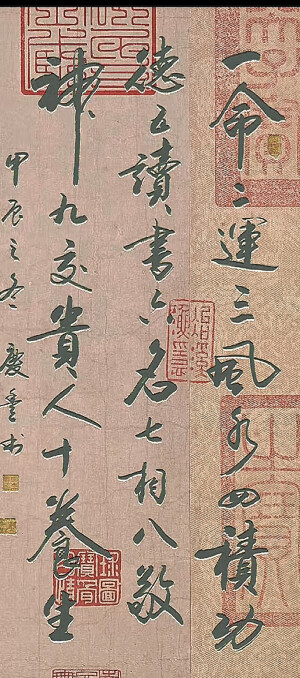 一命二運三風水四積功
德五讀書六名七相八敬
神九交貴人十養生
甲辰之冬慶